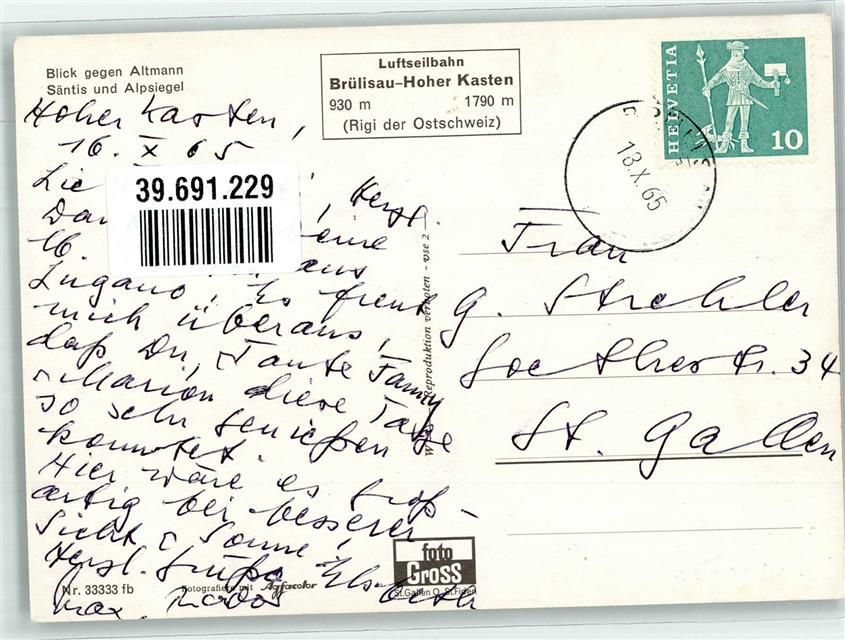 Blick gegen Altmann
Säntis und Alpsiegel
Luftseilbahn
Brülisau–Hoher Kasten
930 m 1790 m
(Rigi der Ostschweiz)
HELVETIA
10
18.X.65
Hoher Kasten,
16. X 65
39.691.229
Lie , Herzl.
Dan eine
16. aus
Lugano. Es freut
mich überaus,
daß Du, Tante Fanny
u. Marion diese Tage
so sehr genießen
konntet.
Hier wäre es groß-
artig bei besserer
Sicht u. Sonne!
Herzl. Grüße Elsbeth
Max
Reproduktion verboten - vse 2
Frau
G. Strehler
Goethestr. 34
St. Gallen
foto
Gross
St. Gallen O. St. Fiden
Nr. 33333 fb
Fotografiere mit Agfacolor